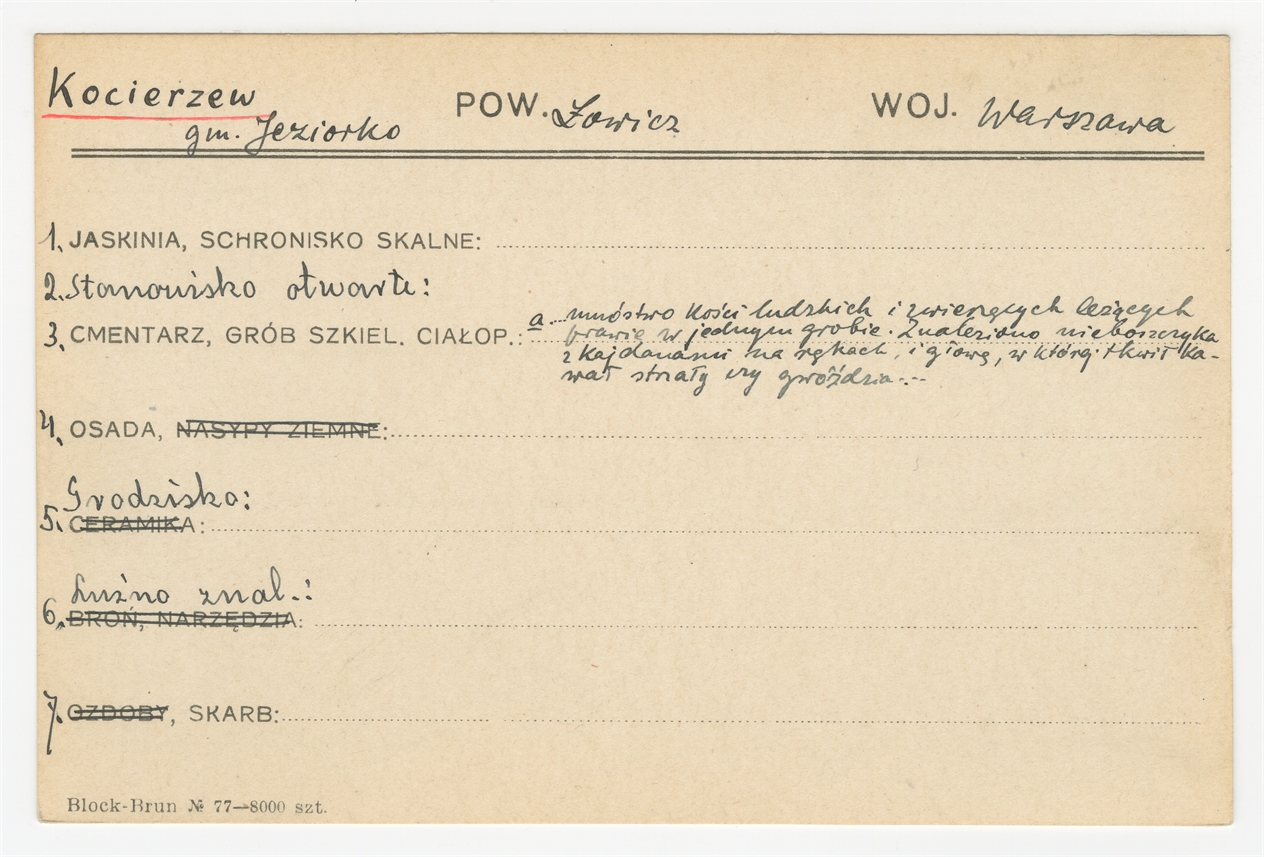 Kocierzew POW. Łowicz WOJ. Warszawa
gm. Jeziorko
1. JASKINIA, SCHRONISKO SKALNE:
2. Stanowisko otwarte:
3. CMENTARZ, GRÓB SZKIEL. CIAŁOP.: a mnóstwo kości ludzkich i zwierzęcych leżących
prawie w jednym grobie. Znaleziono nieboszczyka
z kajdanami na rękach, i głowę, w której tkwił ka-
wał strzały czy gwóździa...
4. OSADA, NASYPY ZIEMNE:
Grodzisko:
5. CERAMIKA:
Luźno znal.:
6. BROŃ, NARZĘDZIA:
7. OZDOBY, SKARB:
Block-Brun № 77—8000 szt.